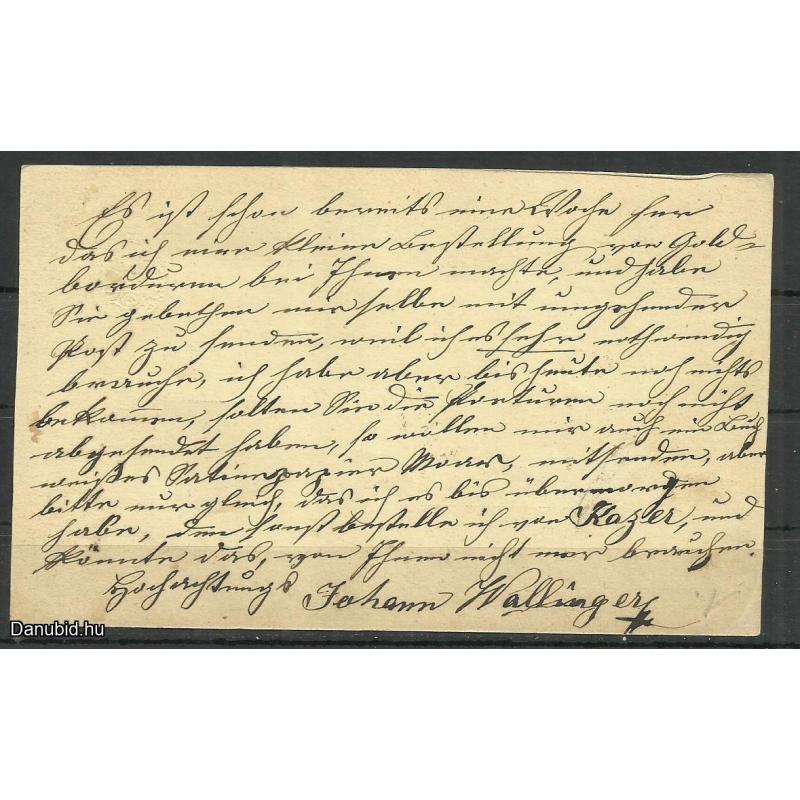 Es ist schon bereits eine Woche her
das ich eine kleine Bestellung von Gold-
borduren bei Ihnen machte, und habe
Sie gebethen mir selbe mit umgehender
Post zu senden, weil ich es sehr nothwendig
brauche, ich habe aber bis heute noch nichts
bekommen, solten Sie die Porturen noch nicht
abgesendet haben, so wollen mir auch ein Buch
weißes Satinepapier Moar, mitsenden, aber
bitte nur gleich, das ich es bis übermorgen
habe, den sonst bestelle ich von Kazler, und
könnte das, von Ihnen nicht mer brauchen.
Hochachtungs Johann Wallinger
Danubid.hu